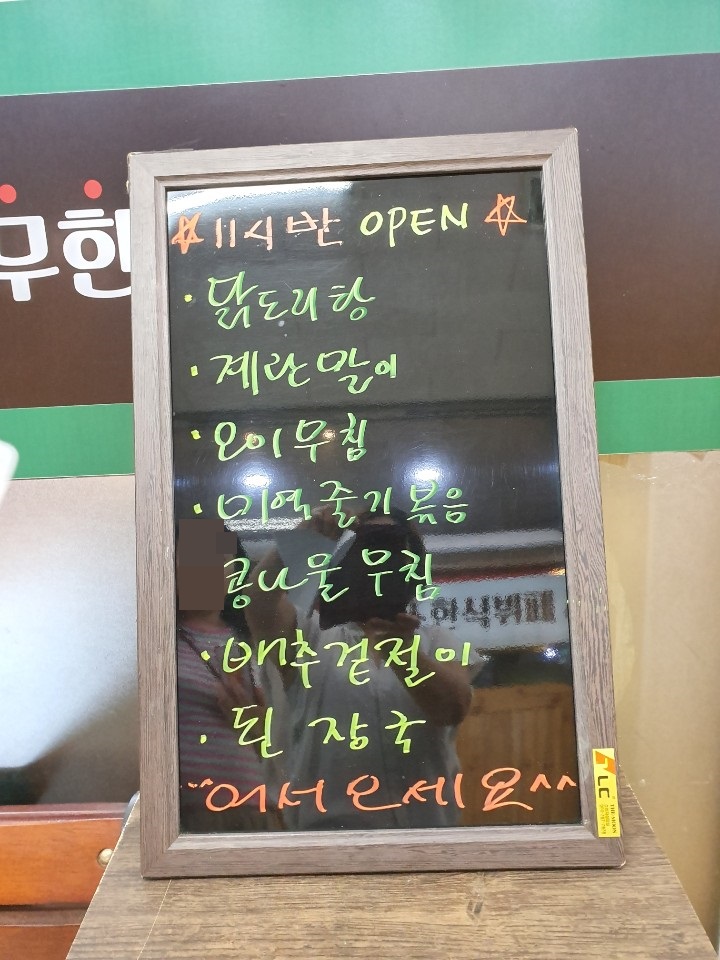 무한
☆11시반 OPEN☆
·닭도리탕
·계란말이
·오이무침
·미역줄기볶음
콩나물무침
한식뷔페
·배추겉절이
·된장국
^^어서오세요^^
LC